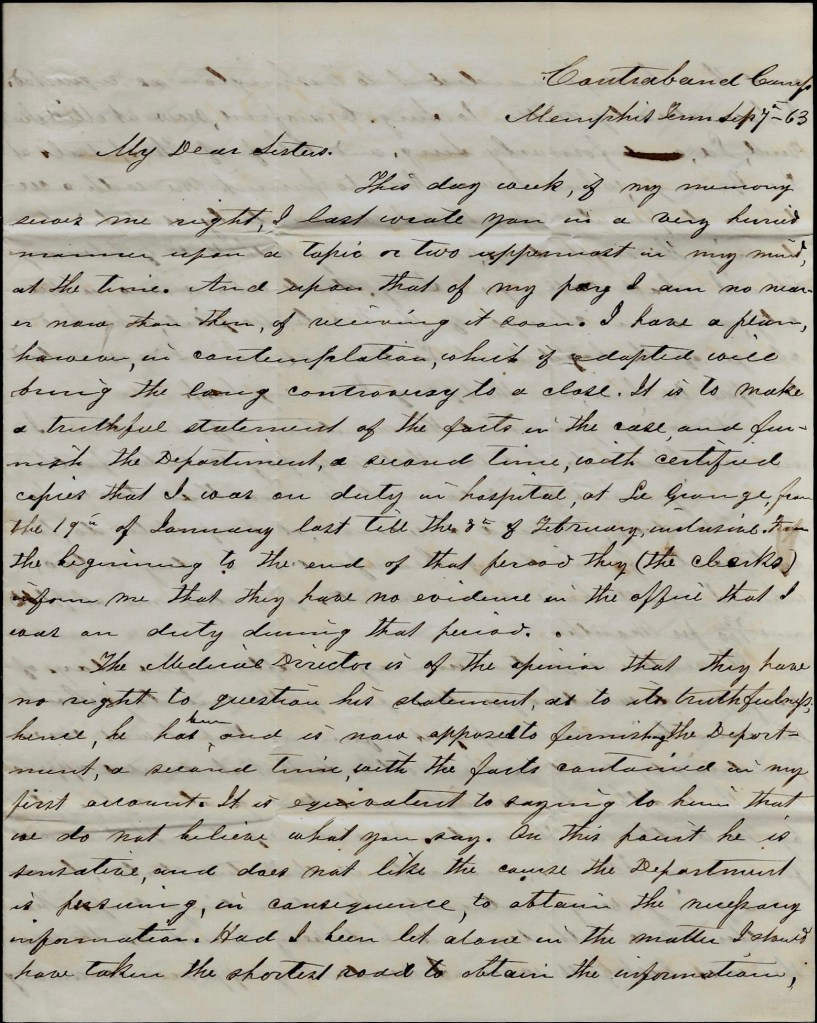 Contraband Camp
Memphis Tenn Sep 7th - 63
My Dear Sisters.
This day week, if my memory
serves me right, I last wrote you in a very huried
manner upon a topic or two uppermost in my mind,
at the time. And upon that of my pay I am no near-
er now than then, of receiving it soon. I have a plan,
however, in contemplation, which if adopted will
bring the long controversy to a close. It is to make
a truthful statement of the facts in the case, and fur-
nish the Department, a second time, with certified
copies that I was on duty in hospital, at La Grange, from
the 19th of January last till the of February, inclusive. From
the beginning to the end of that period they (the clerks)
inform me that they have no evidence in the office that I
was on duty during that period.
The Medical Director is of the opinion that they have
no right to question his statement, as to its truthfulness,
hence, he has been and is now opposed to furnishing the Depart-
ment, a second time, with the facts contained in my
first account. It is equivalent to saying to him that
we do not believe what you say. On this point he is
sensative, and does not like the course the Department
is persuing, in consequence, to obtain the necessary
information. Had I been let alone in the matter I should
have taken the shortest road to obtain the information,